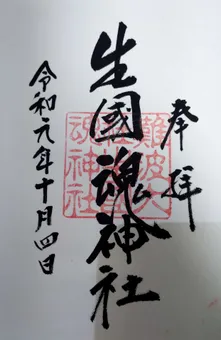 奉拝
生國魂神社
令和元年十月四日
難波大社
生國魂神社